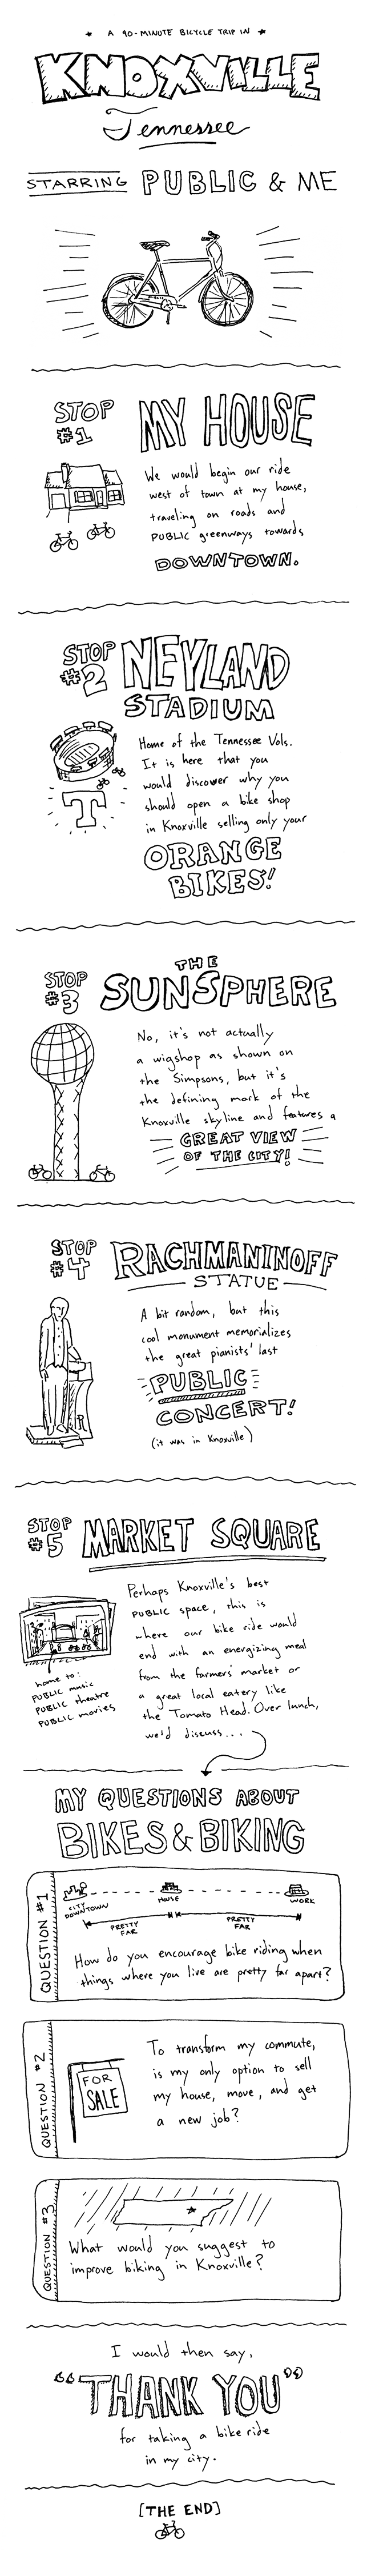 * A 90-MINUTE BICYCLE TRIP IN *
KNOXVILLE
Tennessee
STARRING PUBLIC & ME
STOP #1
MY HOUSE
We would begin our ride
west of town at my house,
traveling on roads and
PUBLIC greenways towards
DOWNTOWN.
STOP #2
NEYLAND
STADIUM
T
Home of the Tennessee Vols.
It is here that you
would discover why you
should open a bike shop
in Knoxville selling only your
ORANGE
BIKES!
STOP #3
THE
SUNSPHERE
No, it's not actually
a wigshop as shown on
the Simpsons, but it's
the defining mark of the
Knoxville skyline and features a
GREAT VIEW
OF THE CITY!
STOP #4
RACHMANINOFF
STATUE
R
A bit random, but this
cool monument memorializes
the great pianists' last
PUBLIC
CONCERT!
(it was in Knoxville)
STOP #5
MARKET SQUARE
Perhaps Knoxville's best
PUBLIC space, this is
where our bike ride would
end with an energizing meal
from the farmers' market or
a great local eatery like
the Tomato Head. Over lunch,
we'd discuss...
home to:
PUBLIC music
PUBLIC theatre
PUBLIC movies
MY QUESTIONS ABOUT
BIKES & BIKING
QUESTION #1
CITY
DOWNTOWN
HOUSE
WORK
PRETTY
FAR
PRETTY
FAR
How do you encourage bike riding when
things where you live are pretty far apart?
QUESTION #2
FOR
SALE
To transform my commute,
is my only option to sell
my house, move, and get
a new job?
QUESTION #3
What would you suggest to
improve biking in Knoxville?
I would then say,
"THANK YOU"
for taking a bike ride
in my city.
[THE END]